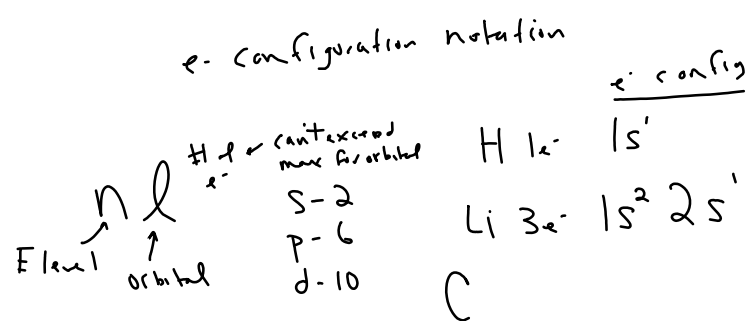 e- configuration notation
e- config
n l # of e- can't exceed
max for orbital
E level
orbital
s-2
p-6
d-10
H 1e- 1s¹
Li 3e- 1s² 2s¹
C